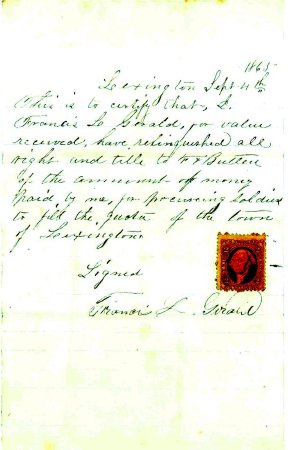 1865
Lexington Sept 11th
This is to certify that, I.
Francis L. Gerald, for value
received, have relinquished all
right and title to
of the ammount of money
paid, by me, for procuring soldiers
to fill the quota of the town
of Lexington.
Signed
Francis L. Gerald